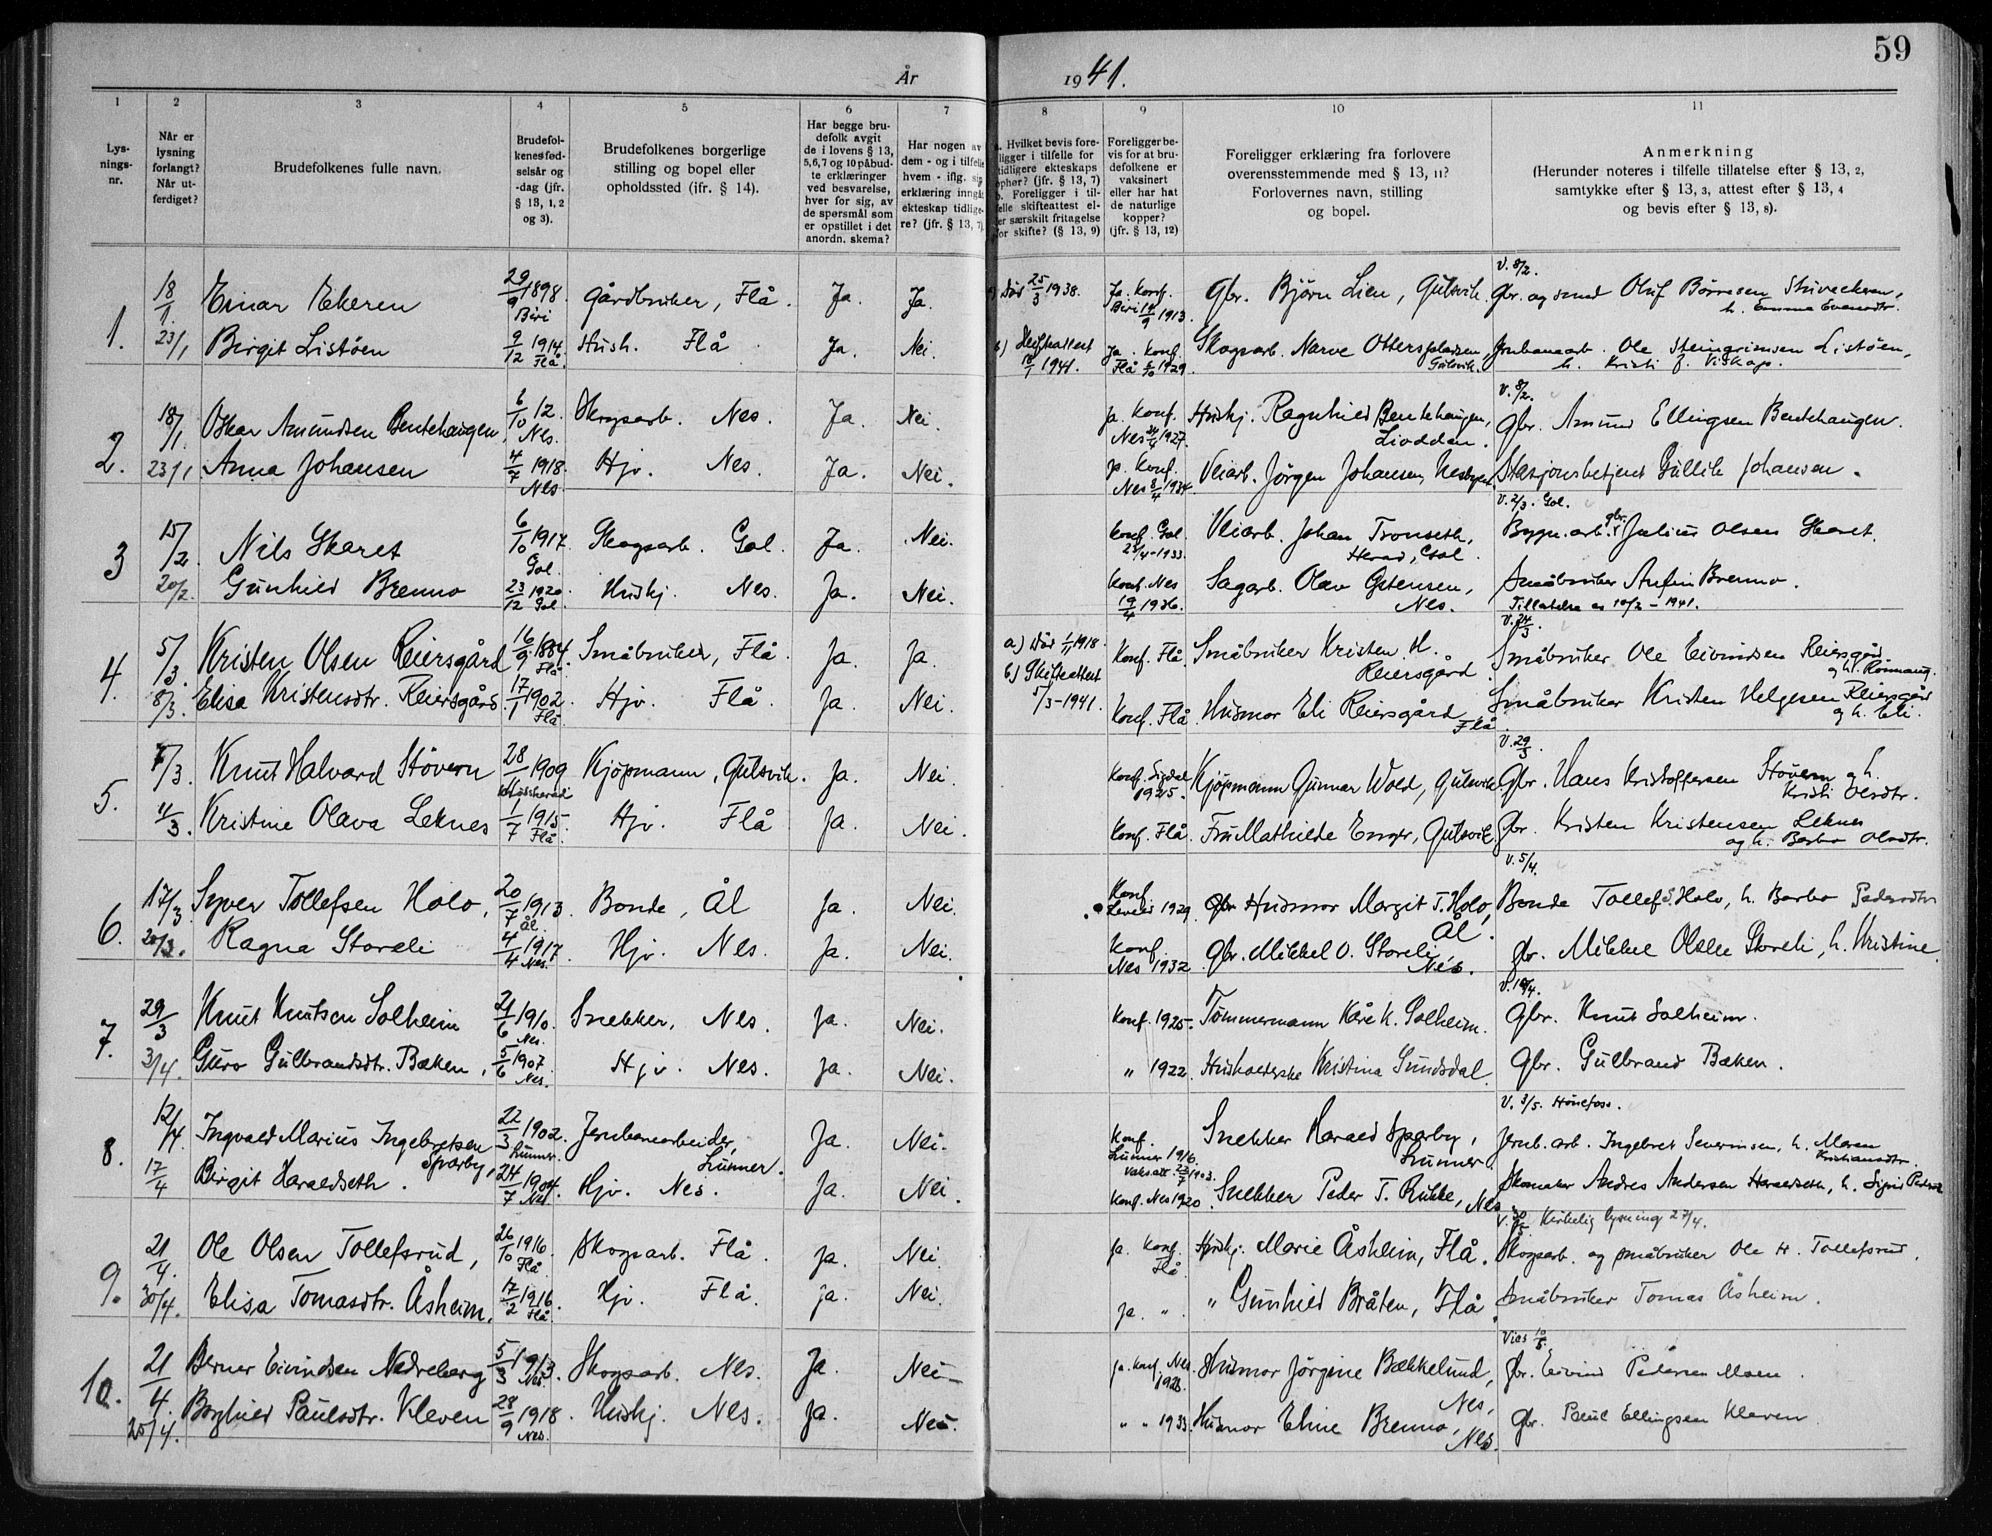 59
År 1941.
1 2 3 4 5 6 7 8 9 10 11
Lys-
nings-
nr.
Når er
lysning
forlangt?
Når ut-
ferdiget?
Brudefolkenes fulle navn.
Brudefol-
kenes fød-
selsår og
-dag (jfr.
§ 13, 1, 2
og 3).
Brudefolkenes borgerlige
stilling og bopel eller
opholdssted (jfr. § 14).
Har begge bru-
defolk avgit
de i lovens § 13,
5,6,7 og 10 påbud-
te erklæringer
ved besvarelse,
hver for sig, av
de spørsmål som
er opstillet i det
anordn. skema?
Har nogen av
dem - og i tilfelle
hvem - iflg. sin
erklæring inngått
ekteskap tidlige-
re? (jfr. § 13, 7).
a. Hvilket bevis fore-
ligger i tilfelle for
tidligere ekteskaps
ophør? (jfr. § 13, 7)
b. Foreligger i til-
felle skifteattest el-
ler særskilt fritagelse
for skifte? (§ 13, 9)
Foreligger be-
vis for at bru-
defolkene er
vaksinert
eller har hat
de naturlige
kopper?
(jfr. § 13, 12)
Foreligger erklæring fra forlovere
overensstemmende med § 13, 11?
Forlovernes navn, stilling
og bopel.
Anmerkning
(Herunder noteres i tilfelle tillatelse efter § 13, 2,
samtykke efter § 13, 3, attest efter § 13, 4
og bevis efter § 13, 8).
V. 8/2.
1. 18/1. Einar Ekeren 29/9 1898. Biri Gårdbruker, Flå. Ja. Ja. Død 25/3 1938. Ja. Konf. Biri 1913. Gbr. Bjørn Lien, Gulsvik. Gbr. og smed Oluf Børresen
h. Emma Evensdtr.
23/1 Birgit Listöen 9/12 1914. Flå. Hush. Flå. Ja. Nei. b) Skifteattest 1941. Ja. Konf. Flå 1929. Skogsarb. Narve Gulsvik. Jernbanearb. Ole Steingrimsen Listöen,
h. Kristi
V. 8/2.
2. 18/1. Oskar Amundsen Bentehaugen, 6/10 12. Nes. Skogsarb. Nes. Ja. Nei. Ja. Konf. Nes 1927. Huskj. Ragnhild Bentehaugen, Liodden. Gbr. Amund Ellingsen Bentehaugen.
23/1 Anna Johansen 4/7 1918. Nes Hjv. Nes. Ja. Nei. Ja. Konf. Nes 1934. Veiarb. Jörgen Johansen, Nesbyen. Stasjonsbetjent Gullik Johansen.
V. 2/3. Gol.
3 15/2. Nils Skaret 6/10 1917. Gol. Skogsarb. Gol. Ja. Nei. Konf. Gol 1933. Veiarb. Johan Tronseth, Herad, Gol. Bygn.arb. gbr. Julius Olsen Skaret.
20/2. Gunhild Brenno 23/12 1920. Gol. Huskj. Nes. Ja. Nei. Konf. Nes 19/4 1936. Sagarb. Olav Nes. Småbruker Anfin Brenno.
Tillatelse av 10/2 - 1941.
V. 24/3.
4. 5/3. Kristen Olsen Reiersgård 16/9 1884. Flå. Småbruker, Flå. Ja. Ja. a) Död 1/1 1918. b) Skifteattest 5/3-1941. Konf. Flå Småbruker Kristen H. Reiersgård. Småbruker Ole Eivindsen Reiersgård
og h. Rönnaug.
8/3. Elisa Kristensdtr. Reiersgård 17/1 1902. Flå Hjv. Flå. Ja. Nei. Konf. Flå. Husmor Eli Reiersgård Flå Småbruker Kristen Helgesen Reiersgård
og h. Eli.
V. 29/3.
5. 7/3. Knut Halvard Stövern 28/1 1909 Krødsherad Kjöpmann, Gulsvik. Ja. Nei. Konf. Sigdal 1925. Kjöpmann Gunnar Wold, Gulsvik. Gbr. Hans Kristoffersen Stövern og h.
Kristi Olsdtr.
11/3. Kristine Olava Leknes 1/7 1915. Flå. Hjv. Flå Ja. Nei. Konf. Flå. Fru Mathilde Enger, Gulsvik. Gbr. Kristen Kristensen Leknes
og h. Barbo Olsdtr.
V. 5/4.
6. 17/3. Syver Tollefsen Holo, 20/7 1913. Ål. Bonde, Ål Ja. Nei. Konf. Leveld 1929. Husmor Margit T. Holo, Ål. Bonde Tollef S. Holo, h. Barbo Pedersdtr
20/3. Ragna Storeli 4/4 1917. Nes. Hjv. Nes. Ja. Nei. Konf. Nes 1932. Gbr. Mikkel O. Storeli Nes. Gbr. Mikkel Olsen Storeli, h. Kristine.
7. 29/3 Knut Knutsen Solheim 21/6 1910. Nes. Snekker, Nes. Ja. Nei. Konf. 1925. Tömmermann Kåre K. Solheim. Gbr. Knut Solheim.
3/4. Guro Gulbrandsdtr. Bæken, 5/6 1907. Nes. Hjv. Nes. Ja. Nei. " 1922. Husholderske Kristina Sundsdal. Gbr. Gulbrand Bæken.
V. 3/5. Hönefoss.
8. 12/4. Ingvald Marius Ingebretsen Sparby, 22/3 1902. Lunner. Jernbanearbeider, Lunner. Ja. Nei. Konf. Lunner 1916. Snekker Harald Sparby, Lunner. Jernb.arb. Ingebret Severinsen, h. Maren
Kristiansdtr.
17/4 Birgit Haraldseth. 24/7 1904. Nes. Hjv. Nes. Ja. Nei. Konf. Nes 1920. Snekker Peder T. Rukke, Nes. Skomaker Andres Andersen Haraldseth, h. Sigrid
Kirkelig lysning 27/4.
9. 21/4. Ole Olsen Tollefsrud, 26/10 1916. Flå Skogsarb. Flå. Ja. Nei. Ja. Konf. Flå. Huskj. Marie Åsheim, Flå. Skogsarb. og småbruker Ole H. Tollefsrud.
30/4. Elisa Tomasdtr. Åsheim, 17/2 1916. Flå. Hjv. Flå. Ja. Nei. Ja. " " Gunhild Bråten, Flå. Småbruker Tomas Åsheim.
10. 21/4. Berner Eivindsen Nedreberg 5/3 1913. Nes. Skogsarb. Nes. Ja. Nei Ja. Konf. Nes 1928. Husmor Jörgine Bækkelund, Nes. Gbr. Eivind Pedersen
25/4. Borghild Paulsdtr. Kleven 28/9 1918. Nes. Huskj. Nes. Ja. Nei. " " 1933. Husmor Eline Brenno, Nes. Gbr. Paul Ellingsen Kleven.